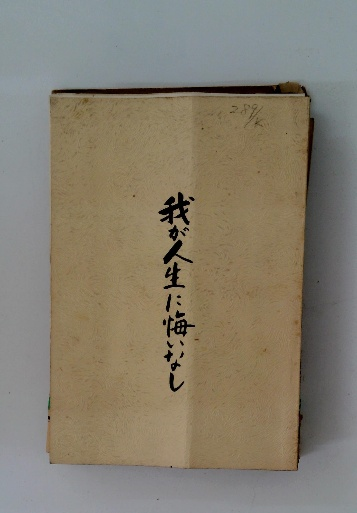 289/K
我が人生に悔いなし